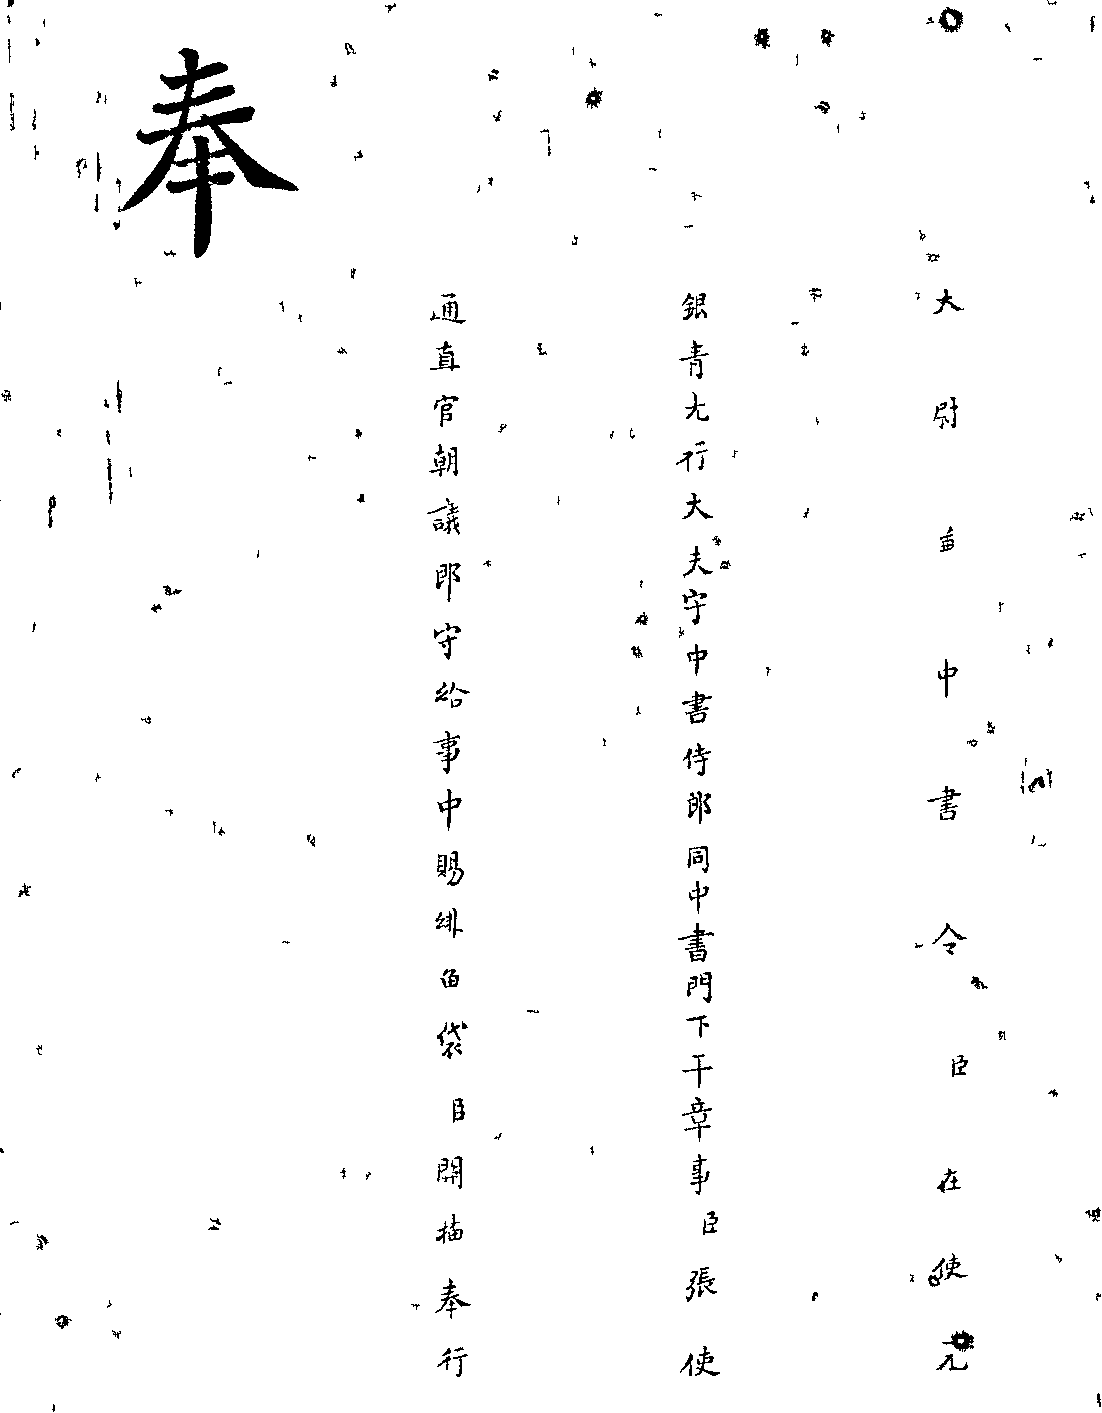 大尉中書令臣在使元
銀青尢行大夫守中書侍郎同中書門下干章事臣張使
通直官朝議郎守給事中賜緋魚袋臣開描奉行
奉